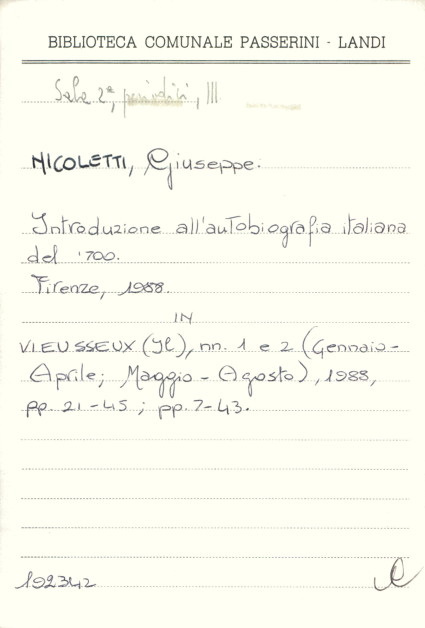 BIBLIOTECA COMUNALE PASSERINI - LANDI
Sala 2ª, periodici, III
NICOLETTI, Giuseppe.
Introduzione all'autobiografia italiana
del '700.
Firenze, 1988.
IN
VIEUSSEUX (Il), nn. 1 e 2 (Gennaio-
Aprile; Maggio - Agosto), 1988,
pp. 21-45; pp. 7-43.
192342